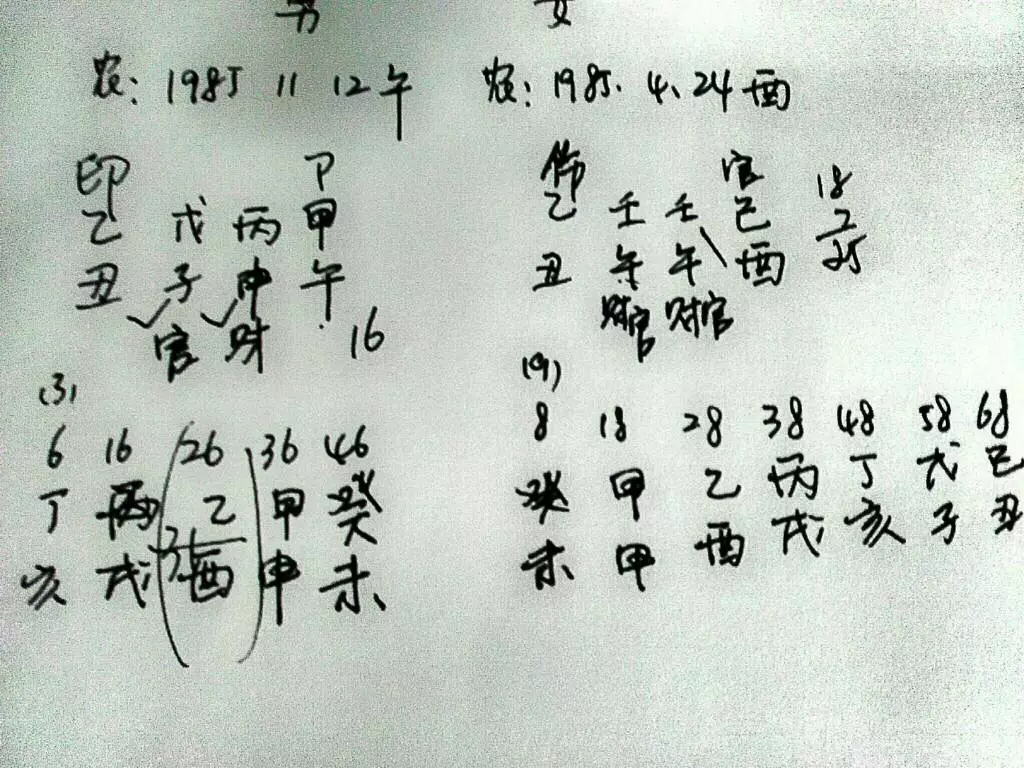 男 女
农：1985 11 12午 农：1985.4.24酉
印 P 伤 官 18
乙 戊 丙 甲 乙 壬 壬 己 7
丑 子 申 午 丑 午 午 酉 25
官 财 16 财官 财官
(3) (9)
6 16 26 36 46 8 18 28 38 48 58 68
丁 丙 乙 甲 癸 癸 甲 乙 丙 丁 戊 己
31
亥 戌 酉 申 未 未 申 酉 戌 亥 子 丑